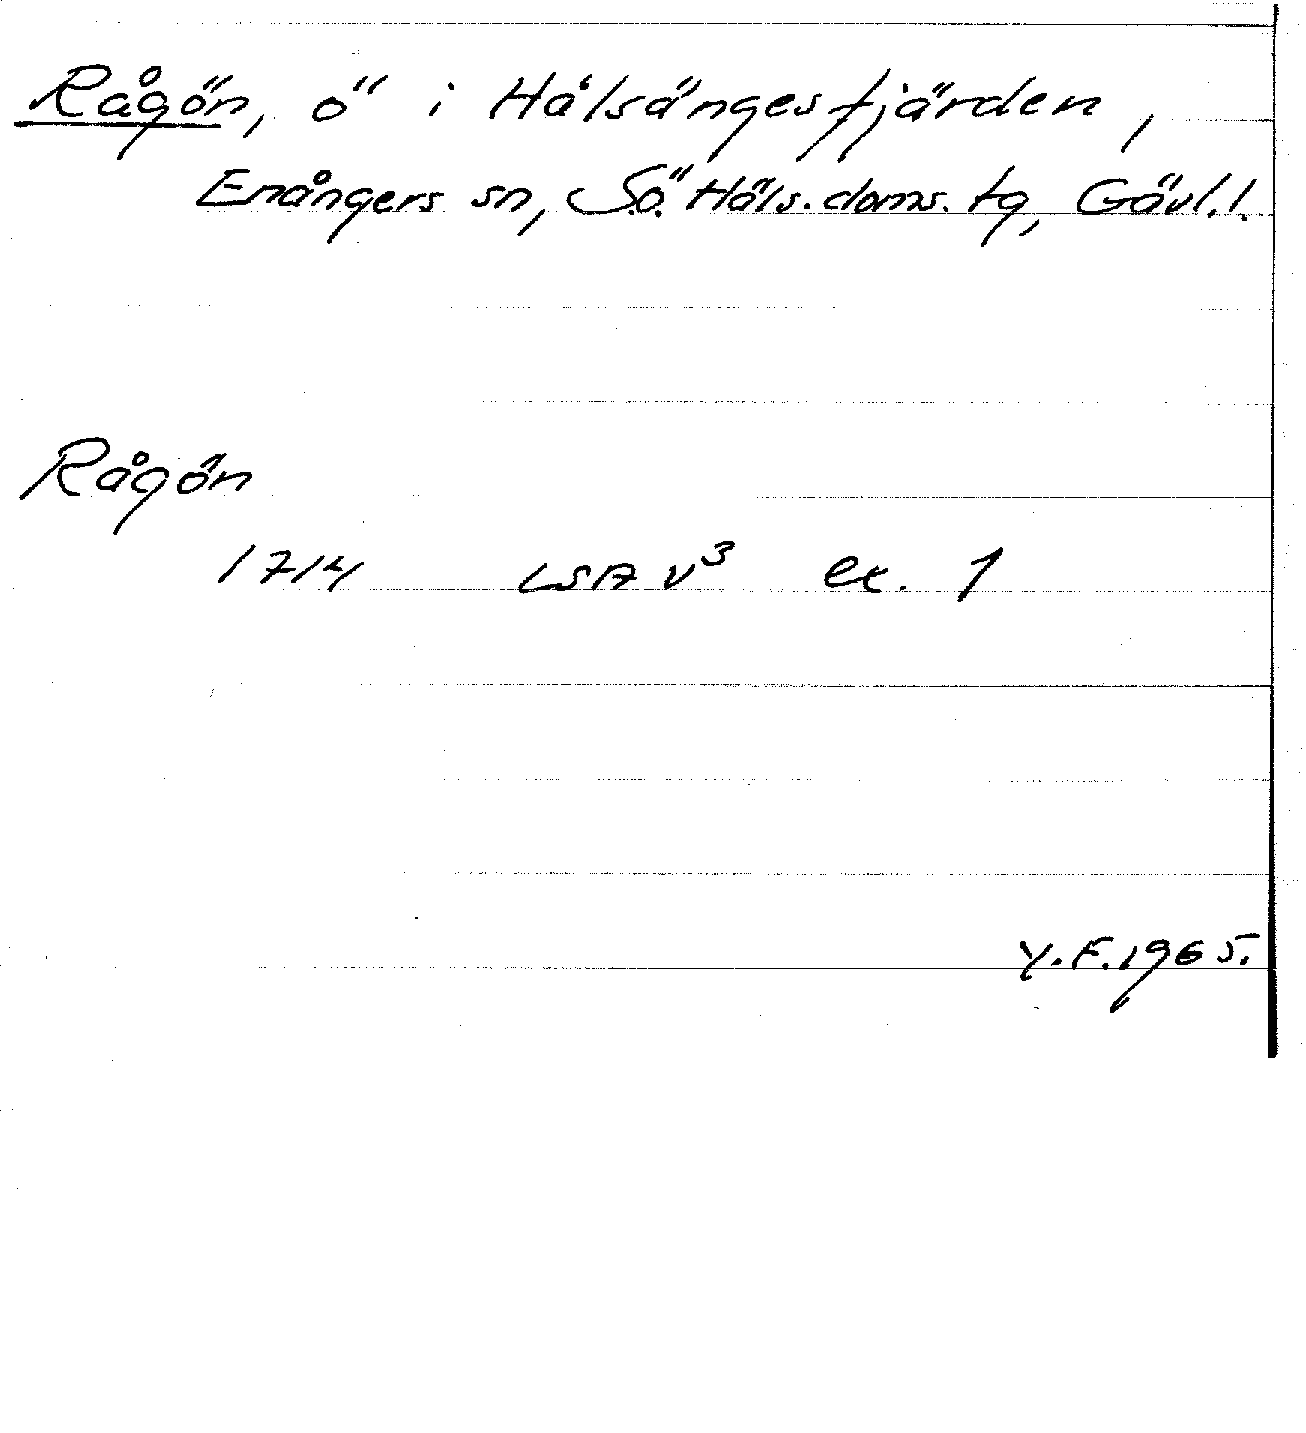 Rågön, ö i Hålsängesfjärden,
Enångers sn, S.ö. Häls. doms. tg, Gävl. l.
Rågön
1714 LSA V³ ex. 1
Y.F. 1965.